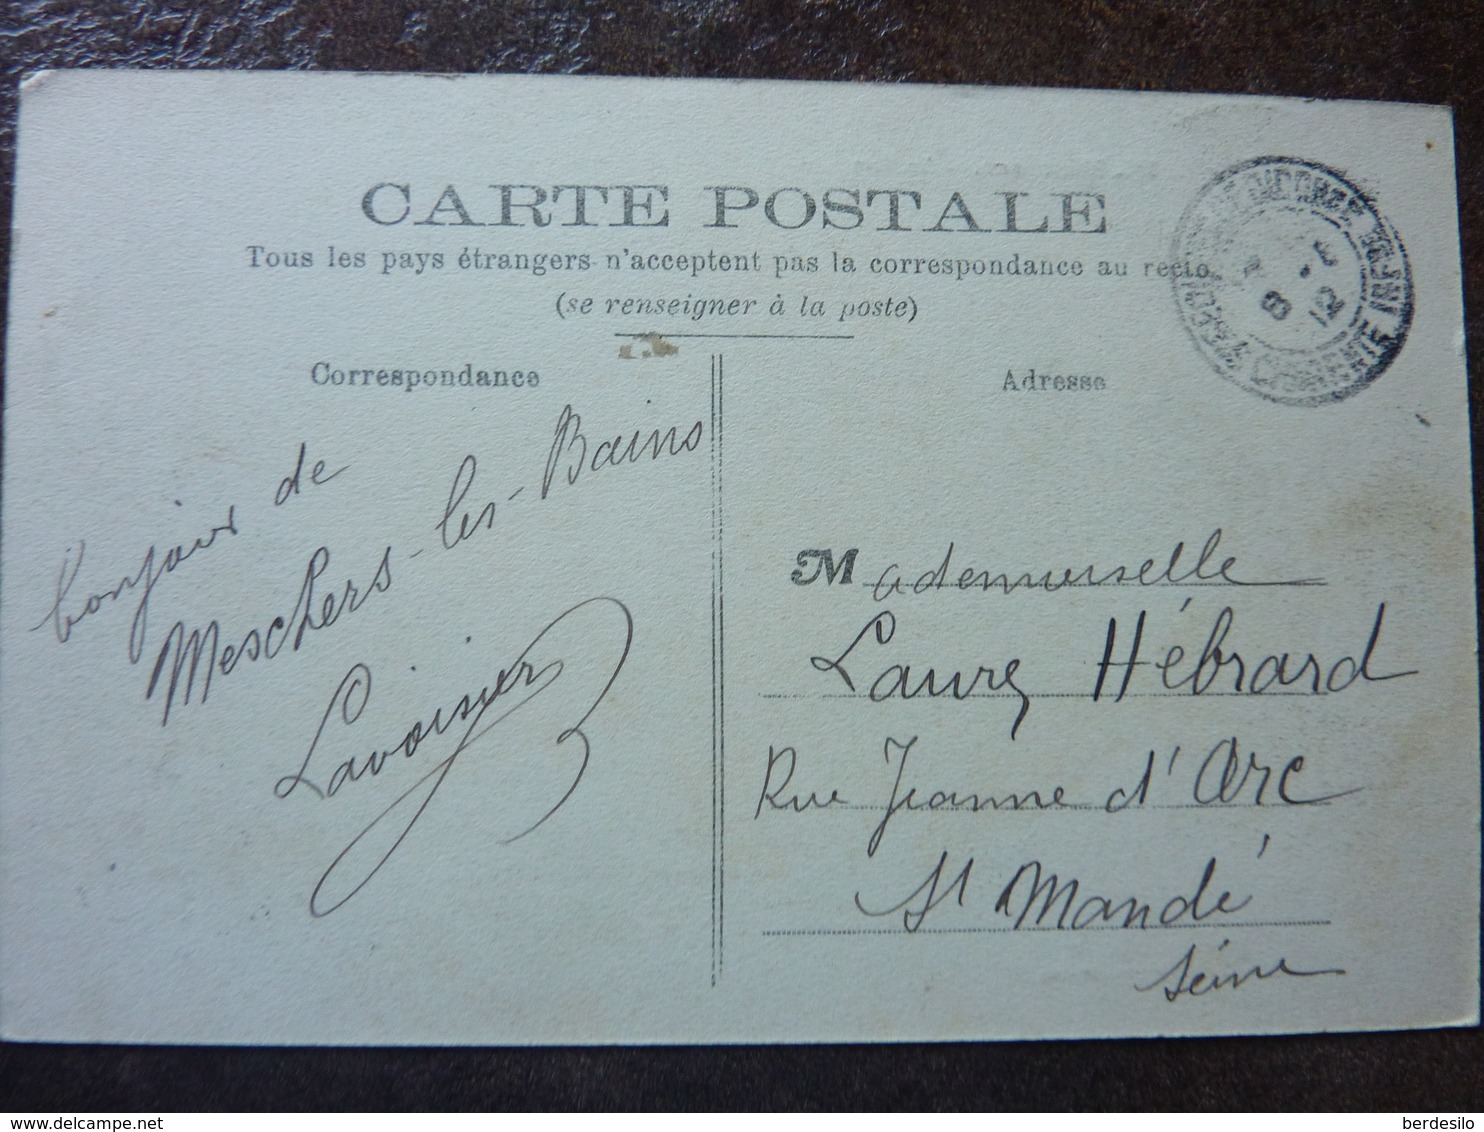 CARTE POSTALE
Tous les pays étrangers n'acceptent pas la correspondance au recto
(se renseigner à la poste)
Correspondance
Adresse
bonjour de
Meschers-les-Bains
Lavoisier
Mademoiselle
Laure Hébrard
Rue Jeanne d'Arc
St Mandé
Seine
CHARENTE INFRE
8
12
berdesilo